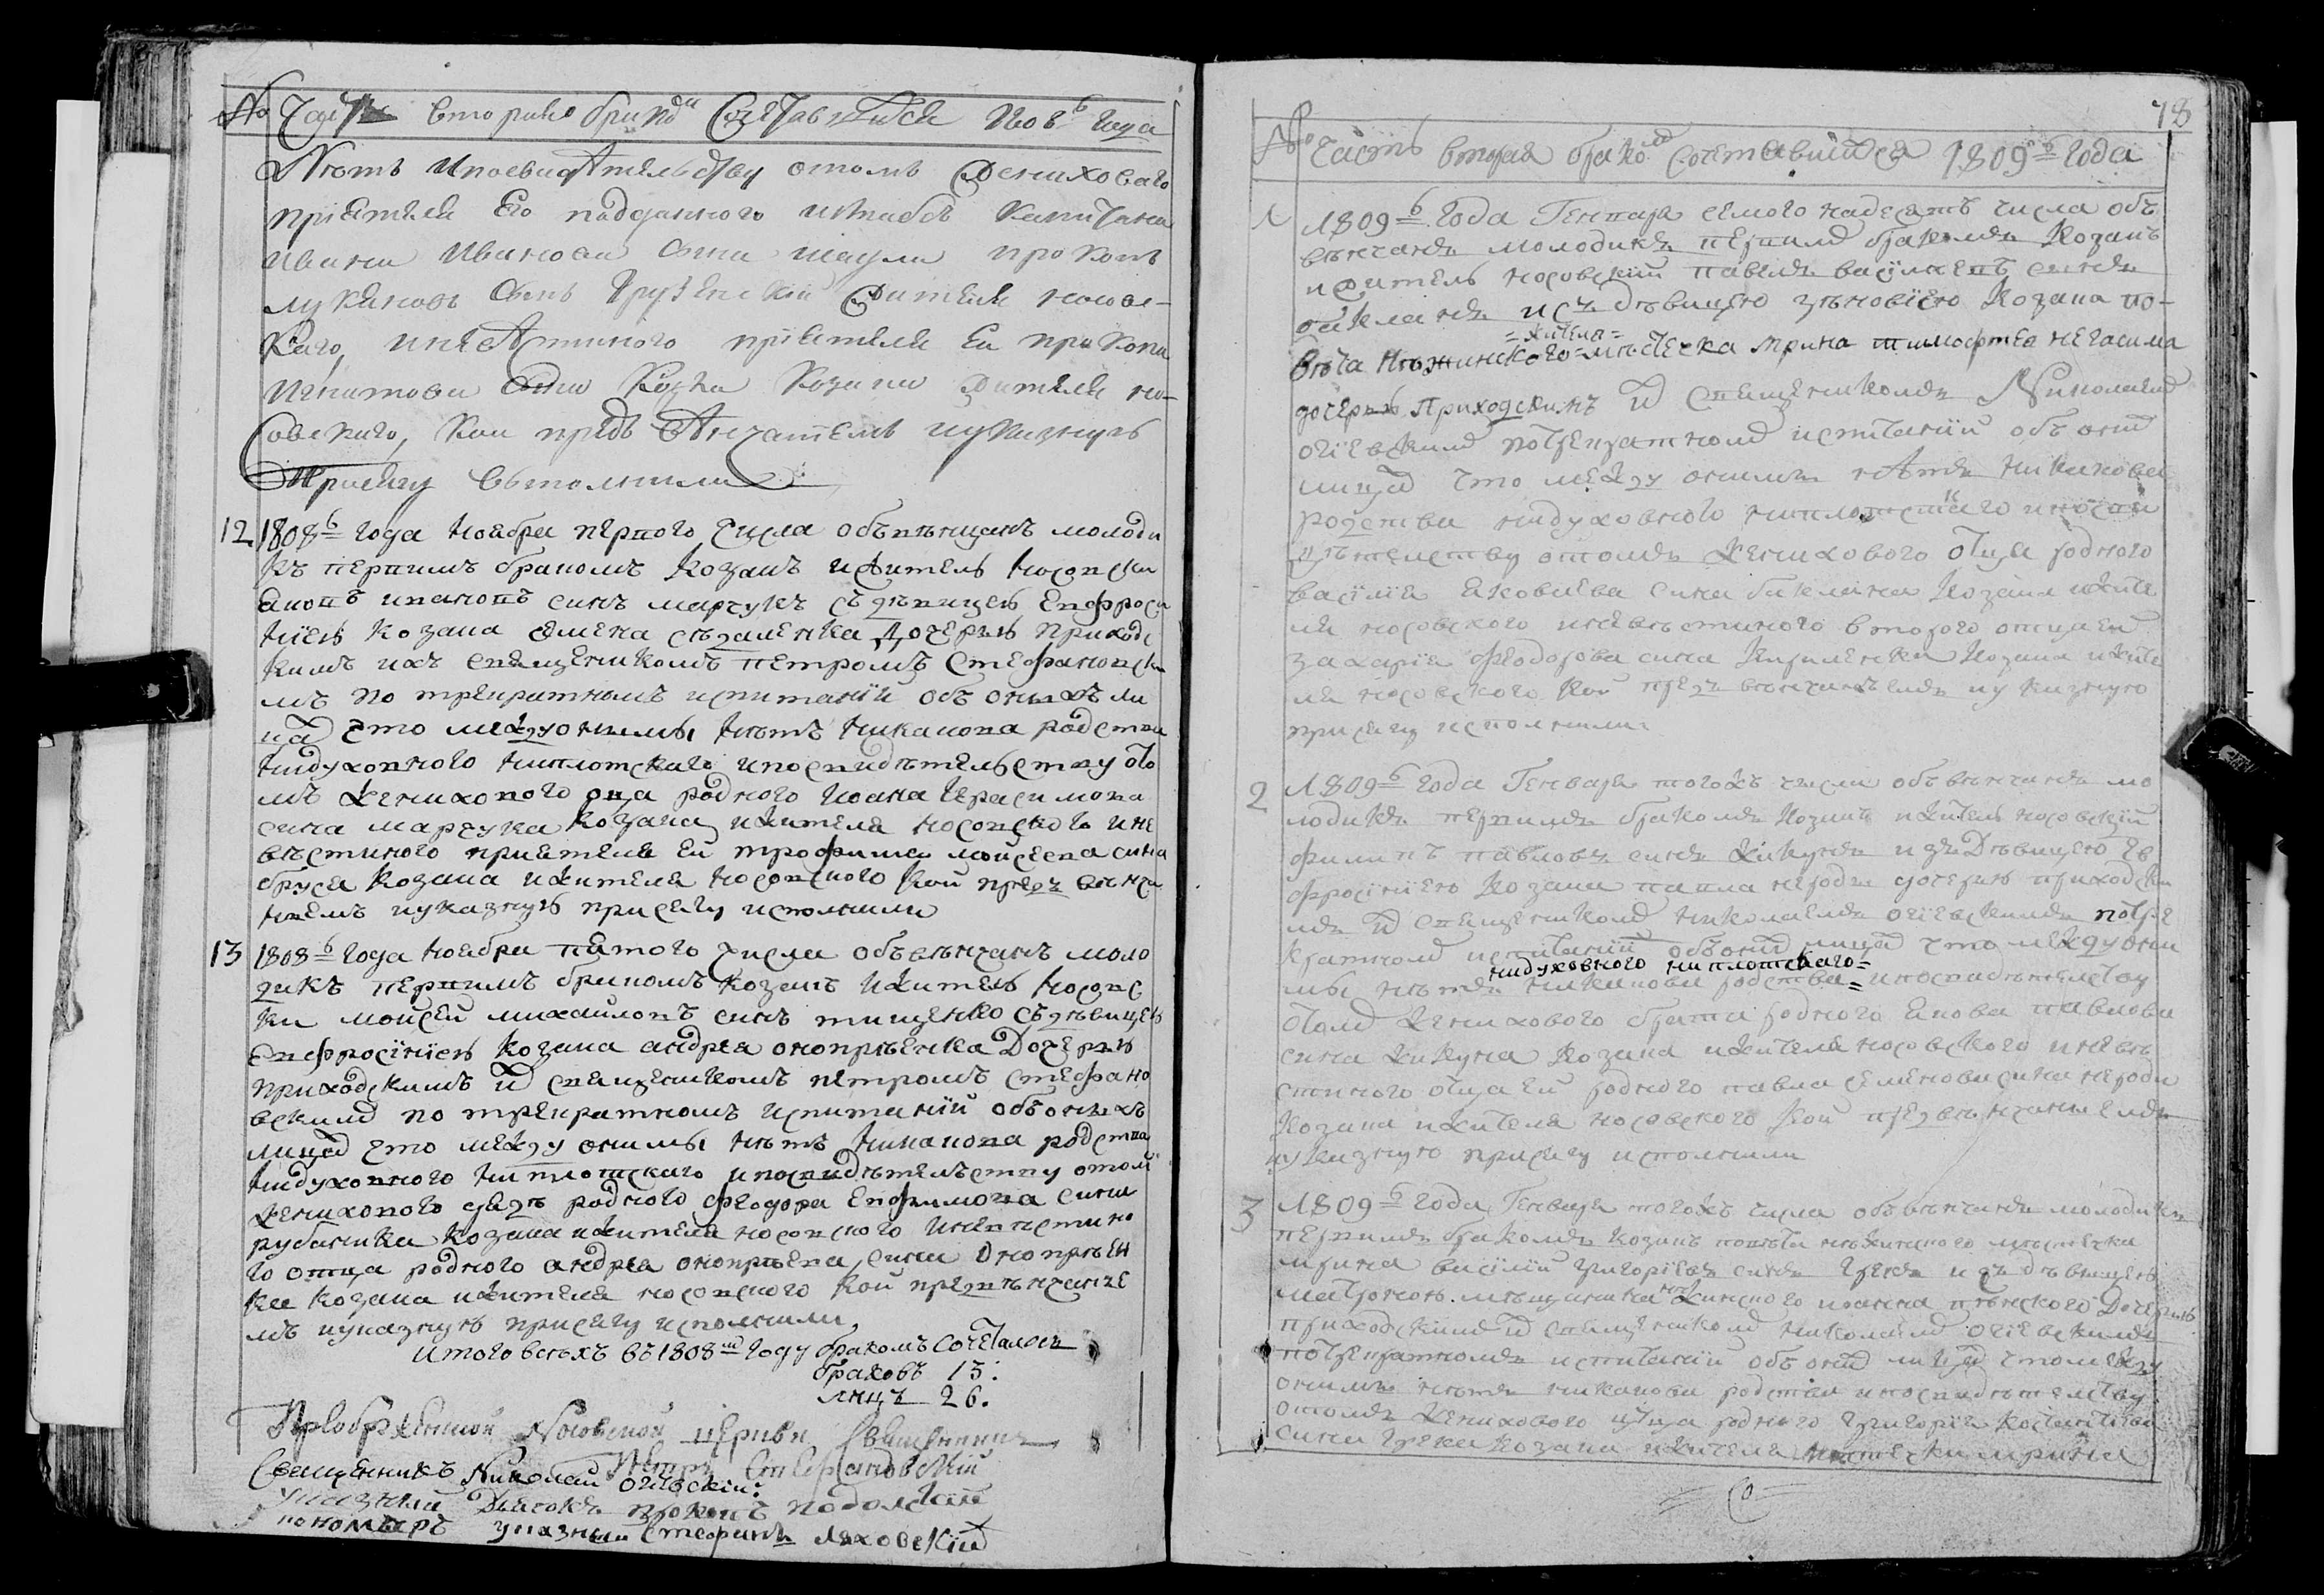 № Часть вторая о бракѣ сочетавшихся 1808го года
Нѣтъ и посвидѣтельству отомъ Жениховаго
приятеля Его подданного штабсъ капитана
Ивана Иванова сина шаули прокопъ
лукяновъ синъ Жителя носов-
каго, инев приятеля Ея прокопа
Игнатова сина козака Жителя но-
совского, кои предъ венчаниемъ иуказную
присягу выполнили
12 1808го года ноября первого числа обвѣнчанъ молоди
къ первимъ бракомъ козакъ ижитель носовски
яковъ ивановъ синъ марчукъ съ дѣвицею Евфроси
ниею козака семена дочерью приходс
кимъ ихъ священикомъ петромъ стефановски
мъ по трекратномъ испитаніи объ онихъ ли
цах что между онимы нѣтъ никакова родства
нидуховного ниплотскаго ипосвидѣтельству ото
мъ жениховового оца родного Иоана Герасимова
сина марчука козака ижителя носовского ине
вѣстиного приятеля ей трофима мойсеева сина
бруса козака ижителя носовского кои предъ венча
ниемъ иуказную присягу исполнили
13 1808го года ноября пятого числа обвѣнчанъ моло
дикъ первимъ бракомъ козакъ ижитель носовс
ки мойсей михайловъ синъ тищенко съ дѣвицею
Евфросиниею козака андрея оноприенка Дочерью
приходскимъ их священикомъ петромъ стефано
вскимъ по трекратномъ испитаніи объ онихъ
лицах что между онимы нѣтъ никакова родства
нидуховного ниплотскаго ипосвидѣтельству отом
жениховового дядѣ родного феодора Евфимова сина
рубаника козака ижителя носовского иневѣстино
го отца родного андрея оноприева сина оноприен
ка козака ижителя носовского кои предъ вѣнчание
мъ иуказную присягу исполнили,
итого всѣхъ въ 1808м году бракомъ сочеталось
браковъ 13:
лицъ 26.
Преображенской Носовской церкви священникъ
Петръ Стефановский
Священникъ Николай огіевскій:
указный Дьячокъ прокопъ подолскій
пономаръ указный стефанъ ляховскій
78
№ Часть вторая о бракомъ сочетавшихся 1809го года
1 1809го года Генваря семого надесять числа объ
вѣнчанъ молодикъ первимъ бракомъ козакъ
ижитель носовский павелъ васілиевъ синъ
бакланъ исъ дѣвицею зѣновіею козака по-
=жителя=
вѣта Нѣжинского=мѣстечка мрина тимофтея негасима
дочерью приходскимъ их священикомъ Николаем
огіевским потрекратном испитаніи объ оних
лицах что между онимъ нѣтъ никакова
родства нидуховного ниплотскаго ипосви
дѣтелству отомъ женихового отца родного
васілия яковлева сина баклана козака ижите
ля носовского иневѣстиного второго отца ей
захария феодорова сина козака ижите
ля носовского кои предъ вѣнчаниемъ иуказную
присягу исполнили.
2 1809го года Генваря тогожъ числа обвѣнчанъ мо
лодикъ первимъ бракомъ козакъ ижитель носовский
филипъ павловъ синъ кикунъ издѣвицею Ев
фросиніею козака павла негоди дочерью приходски
мъ их священиком николаемъ огіевскимъ потре
кратном испитаніи объоних лицах что между они
нидуховного ниплотскаго=
мы нѣтъ никакова родства= ипосвидѣтелству
отом женихового брата родного якова павлова
сина кикуна козака ижителя носовского иневѣ
стиного отца ей родного павла семенова сина негоди
козака ижителя носовского кои предъ вѣнчаниемъ
иуказную присягу исполнили
3 1809го года Генваря тогожъ числа обвѣнчанъ молодикъ
первимъ бракомъ козакъ повѣта нѣжинского мѣстечка
мрина василий григориевъ синъ грекъ издѣвицею
матроною мѣщанина нѣжинского ивана Дочерью
приходским их священиком николаем огіевскимъ
потрекратномъ испитаніи объ оних лицах что между
онимъ нѣтъ никакова родства ипосвидѣтелству
отомъ женихового отца родного григория костантинова
сина грека козака ижителя мѣстечка мрина